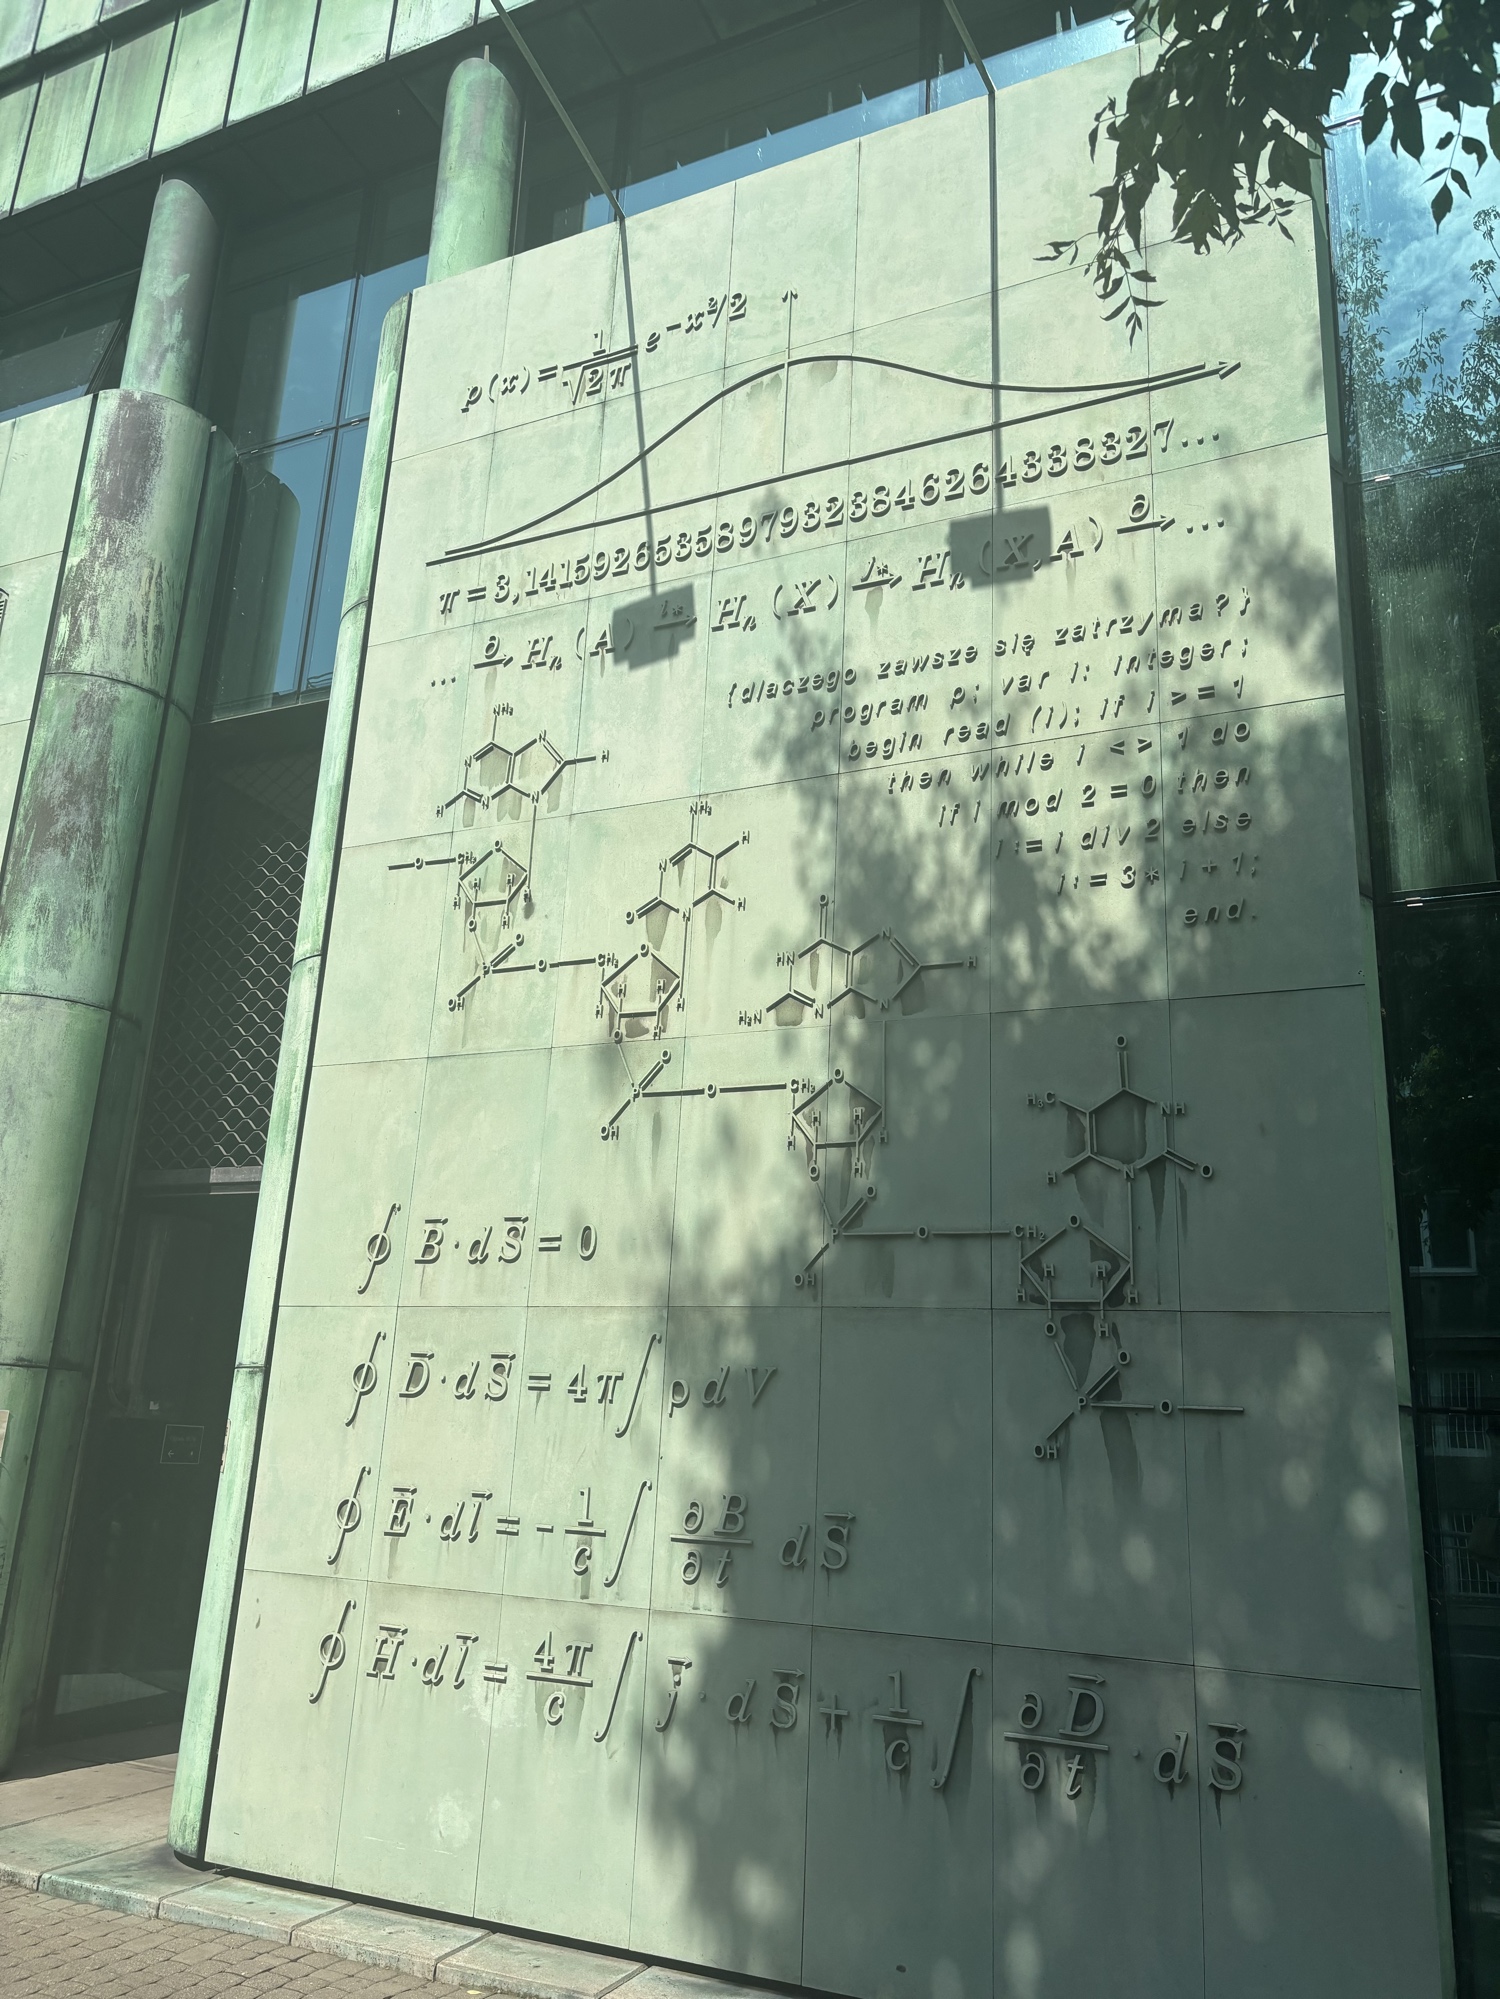 p(x)=1/√2π e^−x²/2
π=3,1415926535897932384626433832​7...
... ∂→ Hn (A) i*→ Hn (X) j*→ Hn (X,A) ∂→ ...
{dlaczego zawsze się zatrzyma?}
program p; var i: integer;
begin read (i); if i >= 1
then while i <> 1 do
if i mod 2=0 then
i:=i div 2 else
i:=3* i+1;
end.
NH₂
N N H
H N N
O CH₂ O
H H H H
O H
P O O CH₂
OH
NH₂
N H
O N H
O
H H H H
O H
P O O CH₂
OH
O
HN N H
H₂N N N
O
H H H H
O H
P O O CH₂
OH
O
H₃C NH
H N O
O
H H H H
O H
O
P O
OH
∮ B⃗·dS⃗=0
∮ D⃗·dS⃗=4π∫ ρdV
∮ E⃗·dl⃗=-1/c∫ ∂B/∂t dS⃗
∮ H⃗·dl⃗=4π/c∫ j⃗·dS⃗+1/c∫ ∂D⃗/∂t·dS⃗